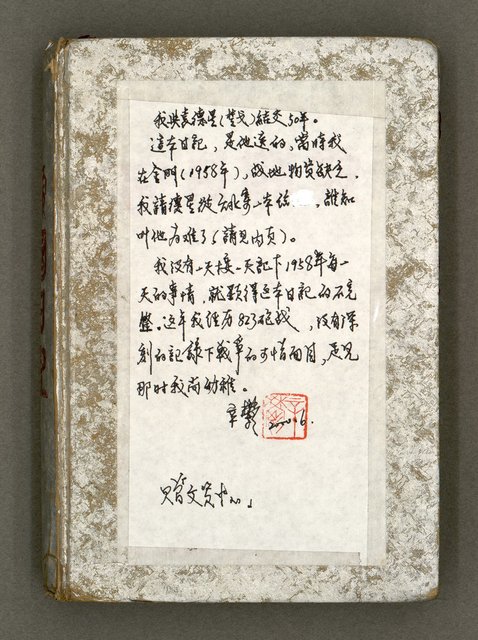 我與袁德星(楚戈)結交50年。
這本日記，是他送的，當時我
在金門(1958年)，戰地物資缺乏，
我請德星從台北寄一本給　，誰知
叫他為難了(請見內頁)。
我沒有一天接一天記下1958年每一
天的事情，就顯得這本日記的不完
整。這年我經历823砲战，沒有深
刻的記錄下戰爭的可惜面目，足見
那时我尚幼稚。
辛鬱 2000.6.
贈文資中心